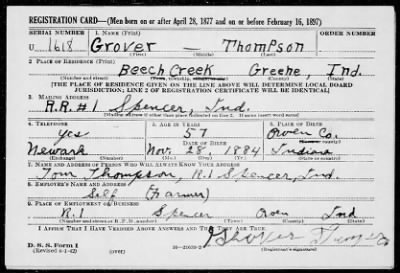 REGISTRATION CARD—(Men born on or after April 28, 1877 and on or before February 16, 1897)
SERIAL NUMBER 1. NAME (Print) ORDER NUMBER
U 1618 Grover — Thompson
(First) (Middle) (Last)
2. PLACE OF RESIDENCE (Print)
Beech Creek Greene, Ind.
(Number and street) (Town, township, village, or city) (County) (State)
[THE PLACE OF RESIDENCE GIVEN ON THE LINE ABOVE WILL DETERMINE LOCAL BOARD
JURISDICTION; LINE 2 OF REGISTRATION CERTIFICATE WILL BE IDENTICAL]
3. MAILING ADDRESS
R.R.#1 Spencer, Ind.
[Mailing address if other than place indicated on line 2. If same insert word same]
4. TELEPHONE 5. AGE IN YEARS 6. PLACE OF BIRTH
Yes 57 Owen Co.
DATE OF BIRTH (Town or county)
Newark Nov. 28, 1884 Indiana
(Exchange) (Number) (Mo.) (Day) (Yr.) (State or country)
7. NAME AND ADDRESS OF PERSON WHO WILL ALWAYS KNOW YOUR ADDRESS
Tom Thompson, R.1 Spencer, Ind.
8. EMPLOYER'S NAME AND ADDRESS
Self (Farmer)
9. PLACE OF EMPLOYMENT OR BUSINESS
R.1 Spencer Owen Ind
(Number and street or R. F. D. number) (Town) (County) (State)
I AFFIRM THAT I HAVE VERIFIED ABOVE ANSWERS AND THAT THEY ARE TRUE.
D. S. S. Form 1 Grover
(Revised 4-1-42) (over) (Registrant's signature)